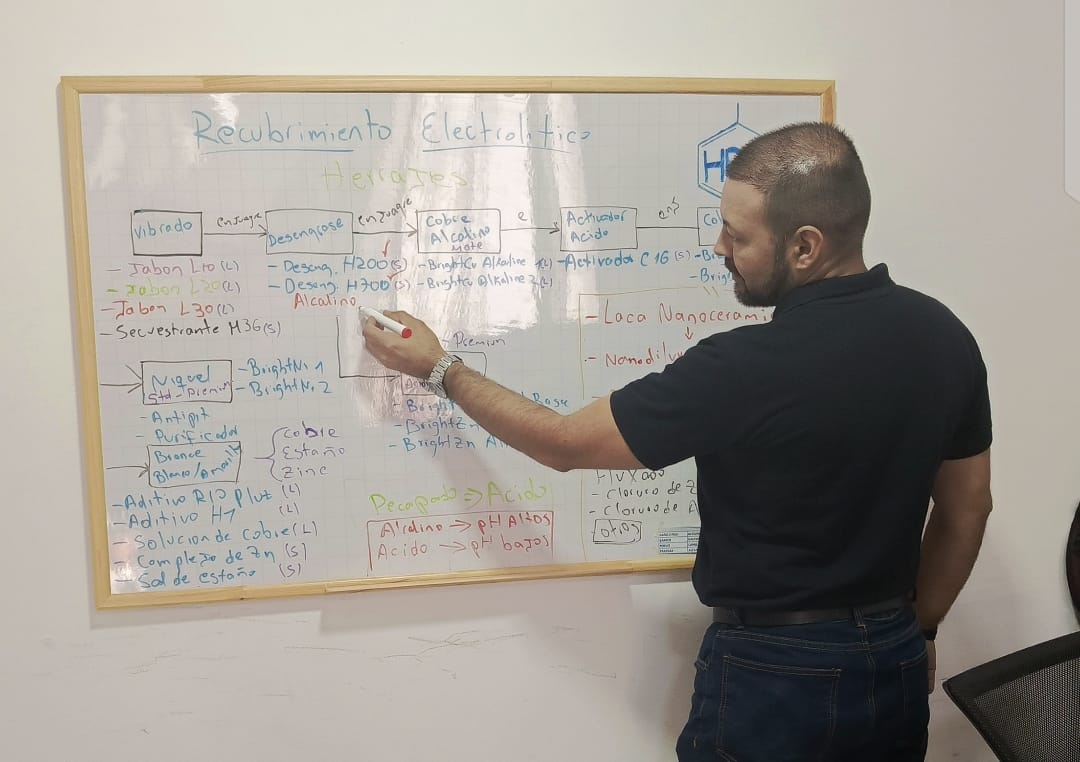 Recubrimiento Electrolitico
Herrajes
Vibrado
enjuague
Desengrase
enjuague
Cobre
Alcalino
Mate
e
Activador
Acido
enj
Co
- Jabon L10 (L)
- Jabon L20 (L)
- Jabon L30 (L)
- Secuestrante M36 (s)
- Deseng. H200 (s)
- Deseng. H700 (s)
Alcalino
- BrightCu Alkaline 1 (L)
- BrightCu Alkaline 2 (L)
- Activador C16 (s)
- Br
- Brig
Niquel
Std - Premium
- BrightNi 1
- BrightNi 2
- Antipit
- Purificador
Bronce
Blanco/Amarillo
Cobre
Estaño
Zinc
- Aditivo R10 Pluz (L)
- Aditivo H1 (L)
- Solucion de cobre (L)
- Complejo de Zn (s)
- Sal de estaño (s)
Premium
- Bright
Base
- BrightZn
- BrightZn Al
Decapado => Acido
Alcalino -> pH Altos
Acido -> pH bajos
- Laca Nanocerami
- Nanodiluy
Fluxado
- Cloruro de Z
- Cloruro de A
Otros